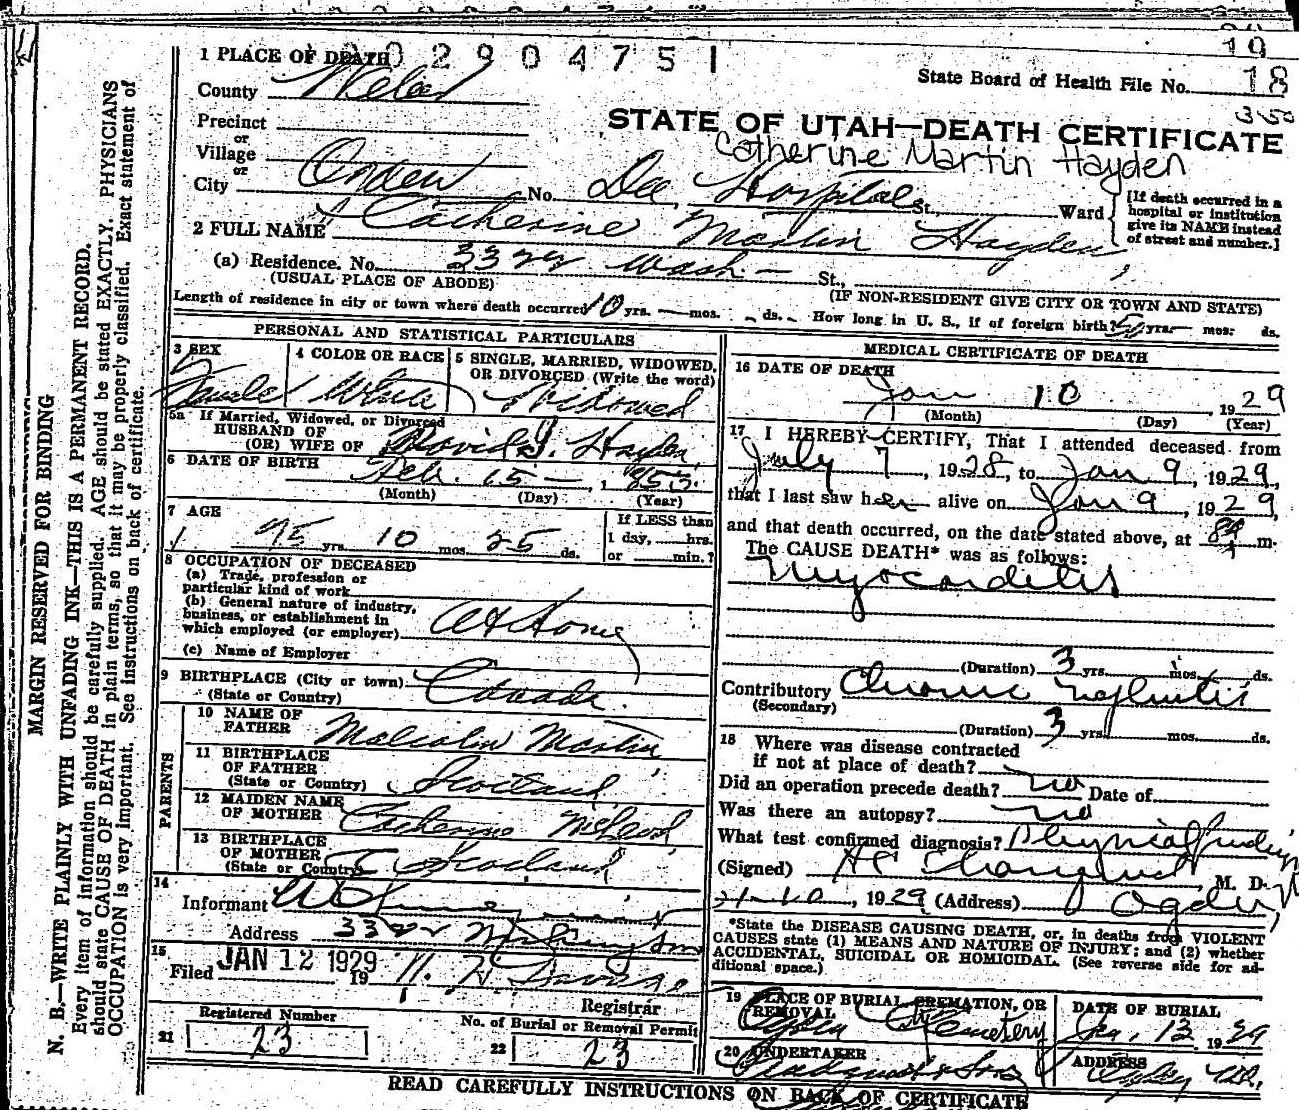 1 PLACE OF DEATH 0 2 9 0 4 7 5 1
19
State Board of Health File No. 18
3-50
County Weber
Precinct
or
Village
or
STATE OF UTAH—DEATH CERTIFICATE
Catherine Martin Hayden
City Ogden No. Dee Hospital St., Ward
[If death occurred in a hospital or institution give its NAME instead of street and number.]
2 FULL NAME Catherine Martin Hayden
(a) Residence. No. Wash— St.,
(USUAL PLACE OF ABODE)
(IF NON-RESIDENT GIVE CITY OR TOWN AND STATE)
Length of residence in city or town where death occurred 10 yrs. — mos. - ds. How long in U. S., if of foreign birth? 50 yrs. mos. ds.
PERSONAL AND STATISTICAL PARTICULARS
3 SEX Female
4 COLOR OR RACE White
5 SINGLE, MARRIED, WIDOWED, OR DIVORCED (Write the word) Widowed
5a If Married, Widowed or Divorced
HUSBAND OF
(OR) WIFE OF David J. Hayden
6 DATE OF BIRTH Feb. 15 — 1853
(Month) (Day) (Year)
7 AGE 75 yrs. 10 mos. 25 ds.
If LESS than 1 day, hrs. or min.?
8 OCCUPATION OF DECEASED
(a) Trade, profession or particular kind of work
(b) General nature of industry, business, or establishment in which employed (or employer) At Home
(c) Name of Employer
9 BIRTHPLACE (City or town) Canada
(State or Country)
PARENTS
10 NAME OF FATHER Malcolm Martin
11 BIRTHPLACE OF FATHER (State or Country) Scotland
12 MAIDEN NAME OF MOTHER Catherine McLeod
13 BIRTHPLACE OF MOTHER (State or Country) Scotland
14
Informant
Address Washington
15
Filed JAN 12 1929 19
Registrar
Registered Number
21 23
No. of Burial or Removal Permit
22 23
MEDICAL CERTIFICATE OF DEATH
16 DATE OF DEATH
Jan 10, 1929
(Month) (Day) (Year)
17 I HEREBY CERTIFY, That I attended deceased from
July 7, 1928, to Jan 9, 1929,
that I last saw her alive on Jan 9, 1929,
and that death occurred, on the date stated above, at m.
The CAUSE DEATH* was as follows:
Myocarditis
(Duration) 3 yrs. mos. ds.
Contributory Chronic Nephritis
(Secondary)
(Duration) 3 yrs. mos. ds.
18 Where was disease contracted
if not at place of death?
Did an operation precede death? no Date of
Was there an autopsy? no
What test confirmed diagnosis? Physical findings
(Signed) M. D.
1-10, 1929 (Address) Ogden, Ut
*State the DISEASE CAUSING DEATH, or, in deaths from VIOLENT
CAUSES state (1) MEANS AND NATURE OF INJURY; and (2) whether
ACCIDENTAL, SUICIDAL OR HOMICIDAL. (See reverse side for ad-
ditional space.)
19 PLACE OF BURIAL, CREMATION, OR REMOVAL
Ogden City Cemetery
DATE OF BURIAL
Jan. 13, 1929
20 UNDERTAKER
Lindquist & Sons
ADDRESS
Ogden Utah
READ CAREFULLY INSTRUCTIONS ON BACK OF CERTIFICATE
MARGIN RESERVED FOR BINDING
N. B.—WRITE PLAINLY WITH UNFADING INK—THIS IS A PERMANENT RECORD.
Every item of information should be carefully supplied. AGE should be stated EXACTLY. PHYSICIANS
should state CAUSE OF DEATH in plain terms, so that it may be properly classified. Exact statement of
OCCUPATION is very important. See instructions on back of certificate.